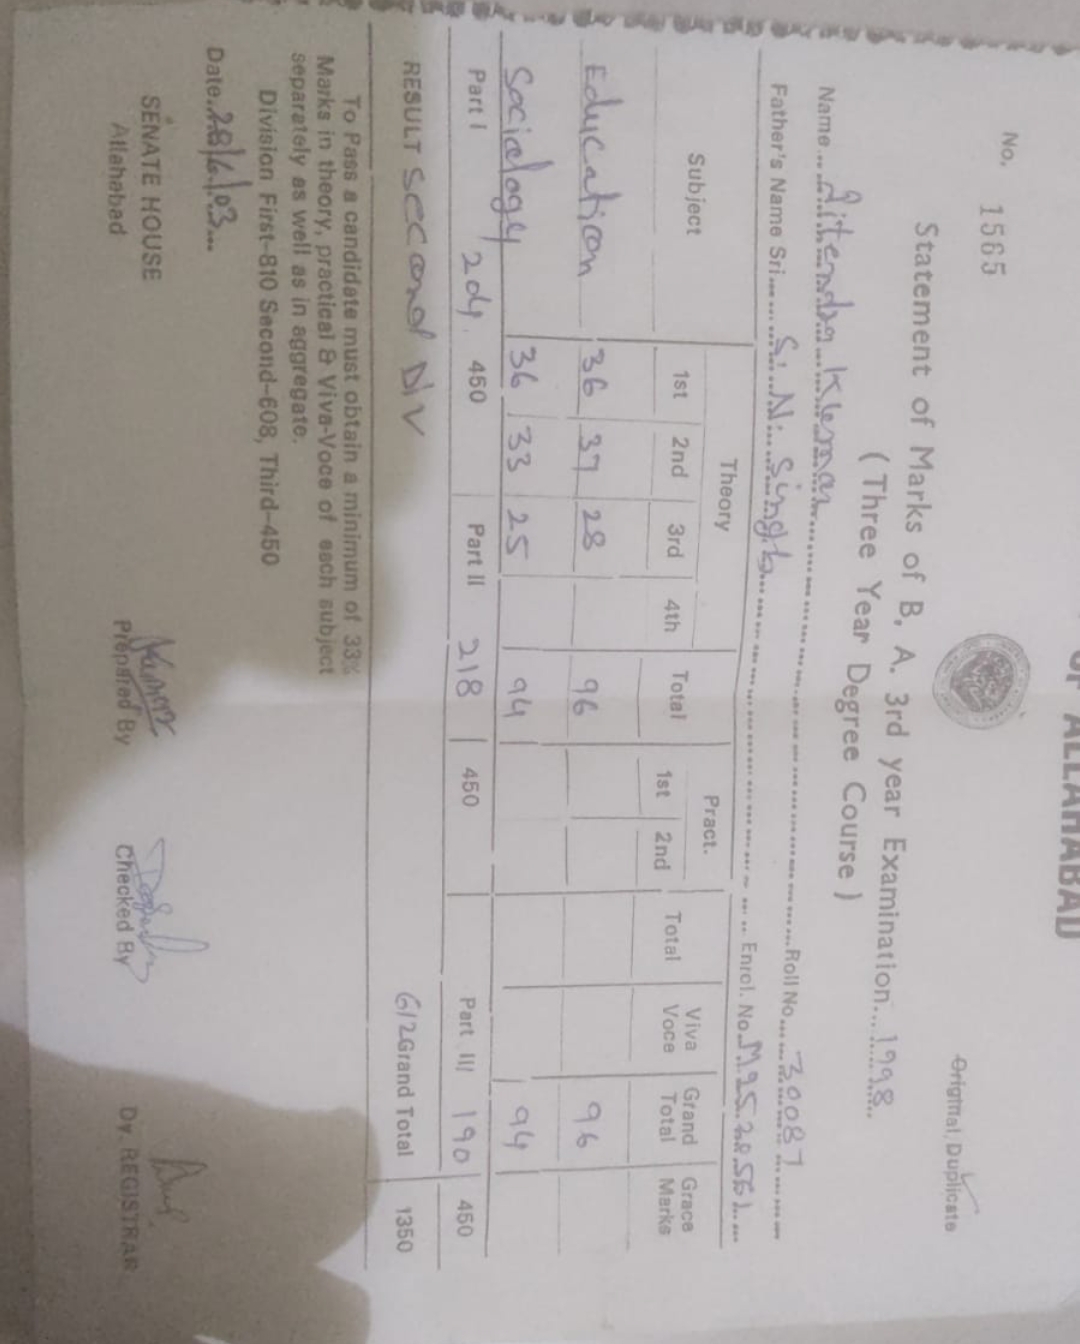 OF ALLAHABAD
No. 1565
Original/Duplicate
Statement of Marks of B. A. 3rd year Examination...1998...
( Three Year Degree Course )
Name... Jitendra Kumar ... Roll No... 30087 ...
Father's Name Sri... S. N. Singh ... Enrol. No.
Subject Theory Pract. Total Viva Voce Grand Total Grace Marks
1st 2nd 3rd 4th Total 1st 2nd
Education 36 37 28 96 96
Sociology 36 33 25 94 94
Part I 204 450 Part II 218 450 Part III 190 450
RESULT Second DIV 612 Grand Total 1350
To Pass a candidate must obtain a minimum of 33%
Marks in theory, practical & Viva-Voce of each subject
separately as well as in aggregate.
Division First-810 Second-608, Third-450
Date..28/6/03...
SENATE HOUSE
Allahabad
Prepared By
Checked By
Dy. REGISTRAR